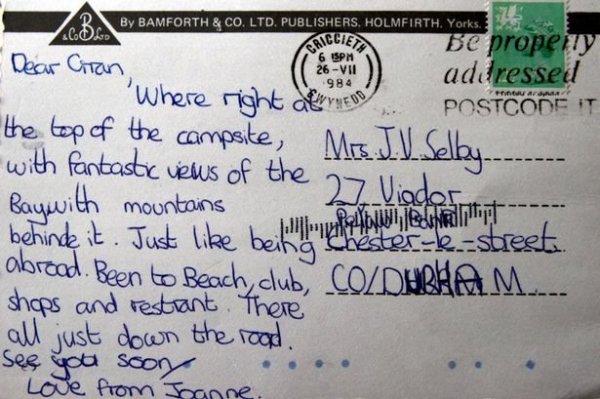 By BAMFORTH & CO. LTD. PUBLISHERS, HOLMFIRTH, Yorks.
B
& Co Ltd
CRICCIETH
6 15PM
26-VII
1984
GWYNEDD
Be properly
addressed
POSTCODE IT
Dear Gran,
Where right at
the top of the campsite,
with fantastic views of the
Bay with mountains
behinde it. Just like being
abroad. Been to Beach, club,
shops and restrant. There
all just down the road.
See you soon
Love from Joanne.
Mrs J.V. Selby
27 Viador
Chester-le-street.
CO/DURHAM.